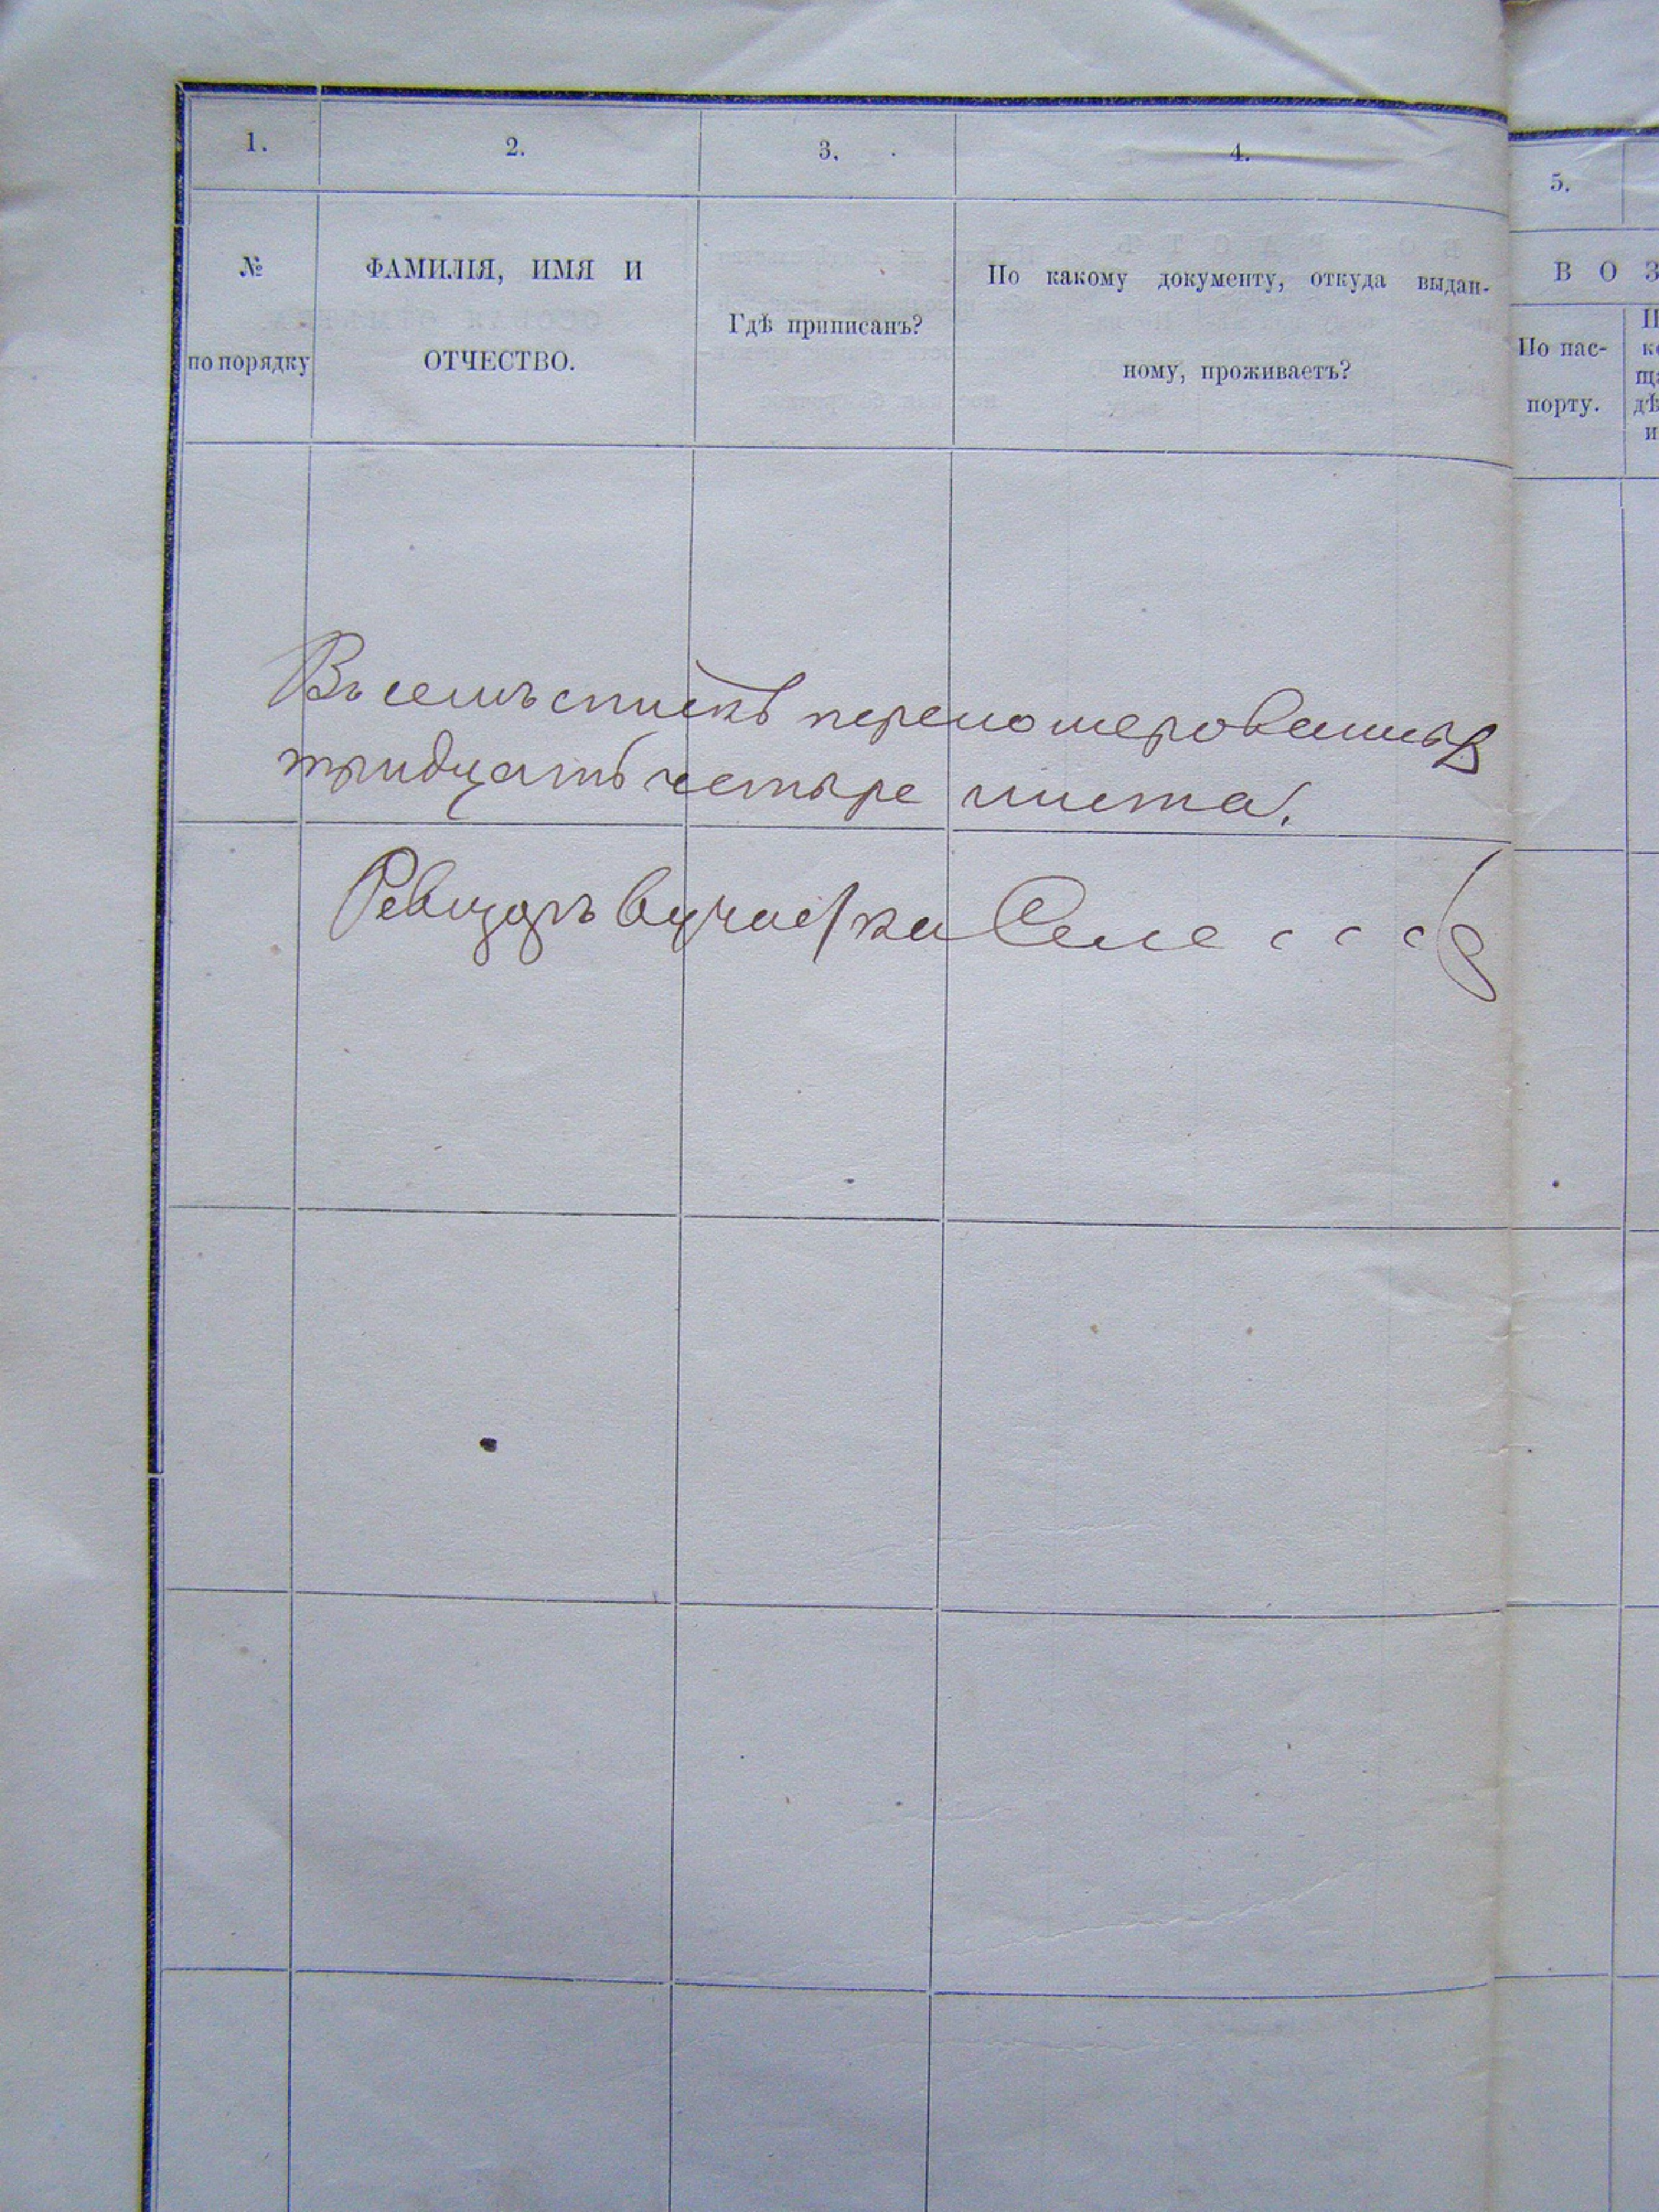 1. 2. 3. 4. 5.
№ по порядку
ФАМИЛІЯ, ИМЯ И
ОТЧЕСТВО.
Гдѣ приписанъ?
По какому документу, откуда выдан-
ному, проживаетъ?
В О З
По пас-
порту.
Въ семъ спискѣ перенумерованныхъ
тридцать четыре листа.
Ревизоръ участка